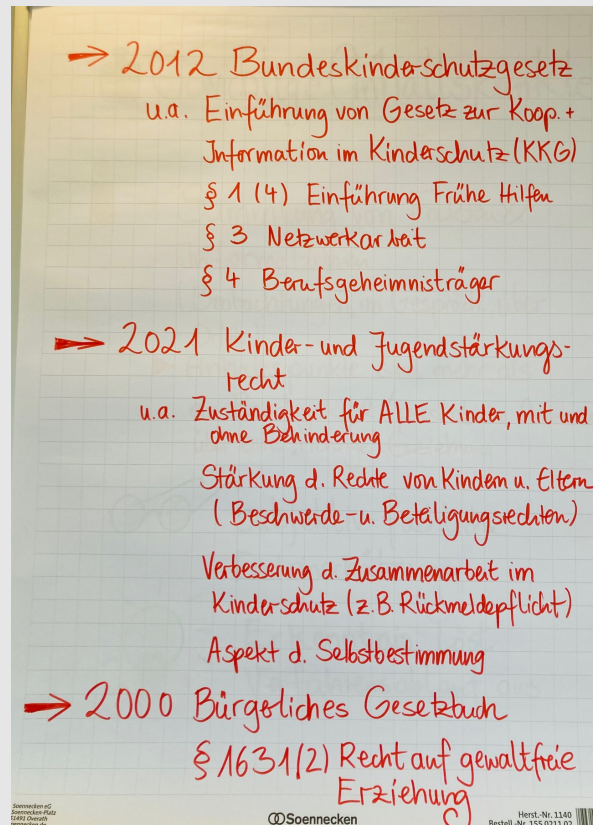 → 2012 Bundeskinderschutzgesetz
u.a. Einführung von Gesetz zur Koop. +
Information im Kinderschutz (KKG)
§ 1 (4) Einführung Frühe Hilfen
§ 3 Netzwerkarbeit
§ 4 Berufsgeheimnisträger
→ 2021 Kinder- und Jugendstärkungs-
recht
u.a. Zuständigkeit für ALLE Kinder, mit und
ohne Behinderung
Stärkung d. Rechte von Kindern u. Eltern
(Beschwerde- u. Beteiligungsrechten)
Verbesserung d. Zusammenarbeit im
Kinderschutz (z.B. Rückmeldepflicht)
Aspekt d. Selbstbestimmung
→ 2000 Bürgerliches Gesetzbuch
§ 1631(2) Recht auf gewaltfreie
Erziehung
Soennecken eG
Soennecken-Platz
51491 Overath
soennecken.de
Soennecken
Herst.-Nr. 1140
Bestell.-Nr. 155 0211 02